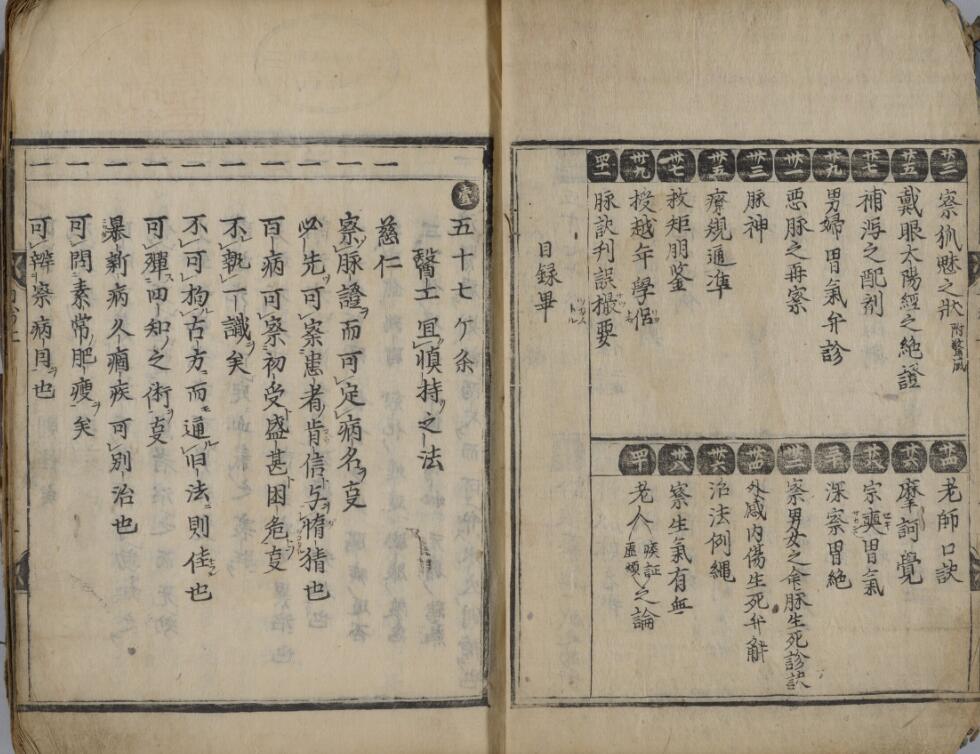 廿三 察狐魅之狀 附驚風
廿五 戴眼太陽經之絶證
廿七 補瀉之配剤
廿九 男婦胃氣弁診
卅一 悪脉之再察
卅三 脉神
卅五 療規通準
卅七 救矩朋鉴
卅九 授越年學侶
四十一 脉訣判誤撮要
目録畢
廿四 老師口訣
廿六 摩訶覺
廿八 宗奭胃氣
三十 深察胃絶
卅二 察男女之命脉生死診訣
卅四 外感内傷生死弁解
卅六 治法例繩
卅八 察生氣有無
四十 老人 痰証虚煩 之論
壹 五十七ケ条
醫士宜慎持之法
一 慈仁
一 察脉證而可定病名叓
一 必先可察患者肯信与惰猜也
一 百病可察初受盛甚困危叓
一 不執一識矣
一 不可拘古方而通旧法則佳也
一 可彈四知之術叓
一 暴新病久痼疾可別治也
一 可問素常肥痩矣
一 可辨察病因也